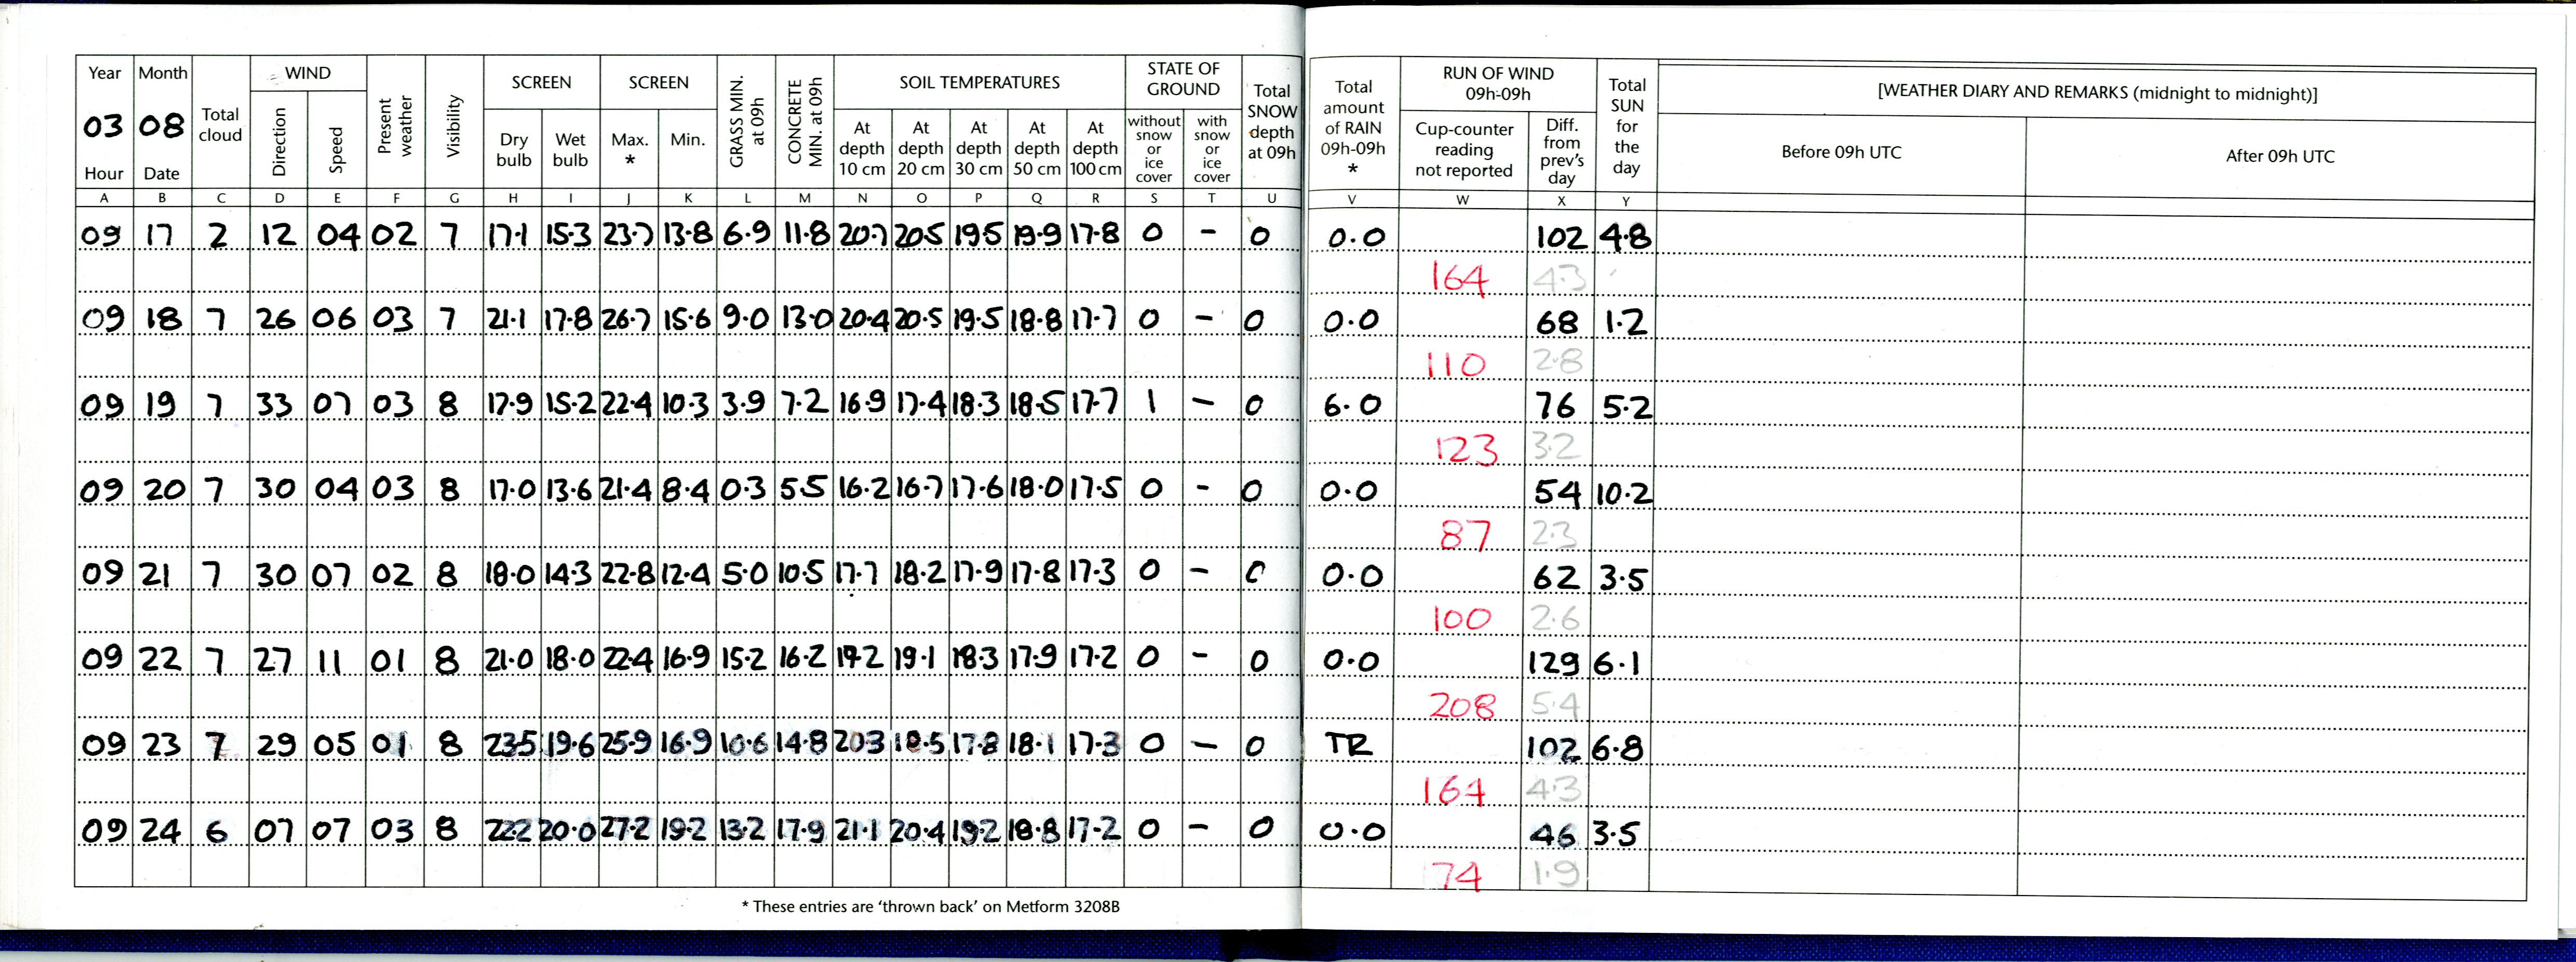 Year Month Total cloud WIND Present weather Visibility SCREEN SCREEN GRASS MIN. at 09h CONCRETE MIN. at 09h SOIL TEMPERATURES STATE OF GROUND Total SNOW depth at 09h Total amount of RAIN 09h-09h * RUN OF WIND 09h-09h Total SUN for the day [WEATHER DIARY AND REMARKS (midnight to midnight)]
03 08 Direction Speed Dry bulb Wet bulb Max. * Min. At depth 10 cm At depth 20 cm At depth 30 cm At depth 50 cm At depth 100 cm without snow or ice cover with snow or ice cover Cup-counter reading not reported Diff. from prev's day Before 09h UTC After 09h UTC
Hour Date
A B C D E F G H I J K L M N O P Q R S T U V W X Y
09 17 2 12 04 02 7 17.1 15.3 23.7 13.8 6.9 11.8 20.7 20.5 19.5 19.9 17.8 0 - 0 0.0 102 4.8
164 4.3
09 18 7 26 06 03 7 21.1 17.8 26.7 15.6 9.0 13.0 20.4 20.5 19.5 18.8 17.7 0 - 0 0.0 68 1.2
110 2.8
09 19 7 33 07 03 8 17.9 15.2 22.4 10.3 3.9 7.2 16.9 17.4 18.3 18.5 17.7 1 - 0 6.0 76 5.2
123 3.2
09 20 7 30 04 03 8 17.0 13.6 21.4 8.4 0.3 5.5 16.2 16.7 17.6 18.0 17.5 0 - 0 0.0 54 10.2
87 2.3
09 21 7 30 07 02 8 18.0 14.3 22.8 12.4 5.0 10.5 17.7 18.2 17.9 17.8 17.3 0 - 0 0.0 62 3.5
100 2.6
09 22 7 27 11 01 8 21.0 18.0 22.4 16.9 15.2 16.2 19.2 19.1 18.3 17.9 17.2 0 - 0 0.0 129 6.1
208 5.4
09 23 7 29 05 01 8 23.5 19.6 25.9 16.9 10.6 14.8 20.3 18.5 17.8 18.1 17.3 0 - 0 TR 102 6.8
164 4.3
09 24 6 07 07 03 8 22.2 20.0 27.2 19.2 13.2 17.9 21.1 20.4 19.2 18.8 17.2 0 - 0 0.0 46 3.5
74 1.9
* These entries are 'thrown back' on Metform 3208B